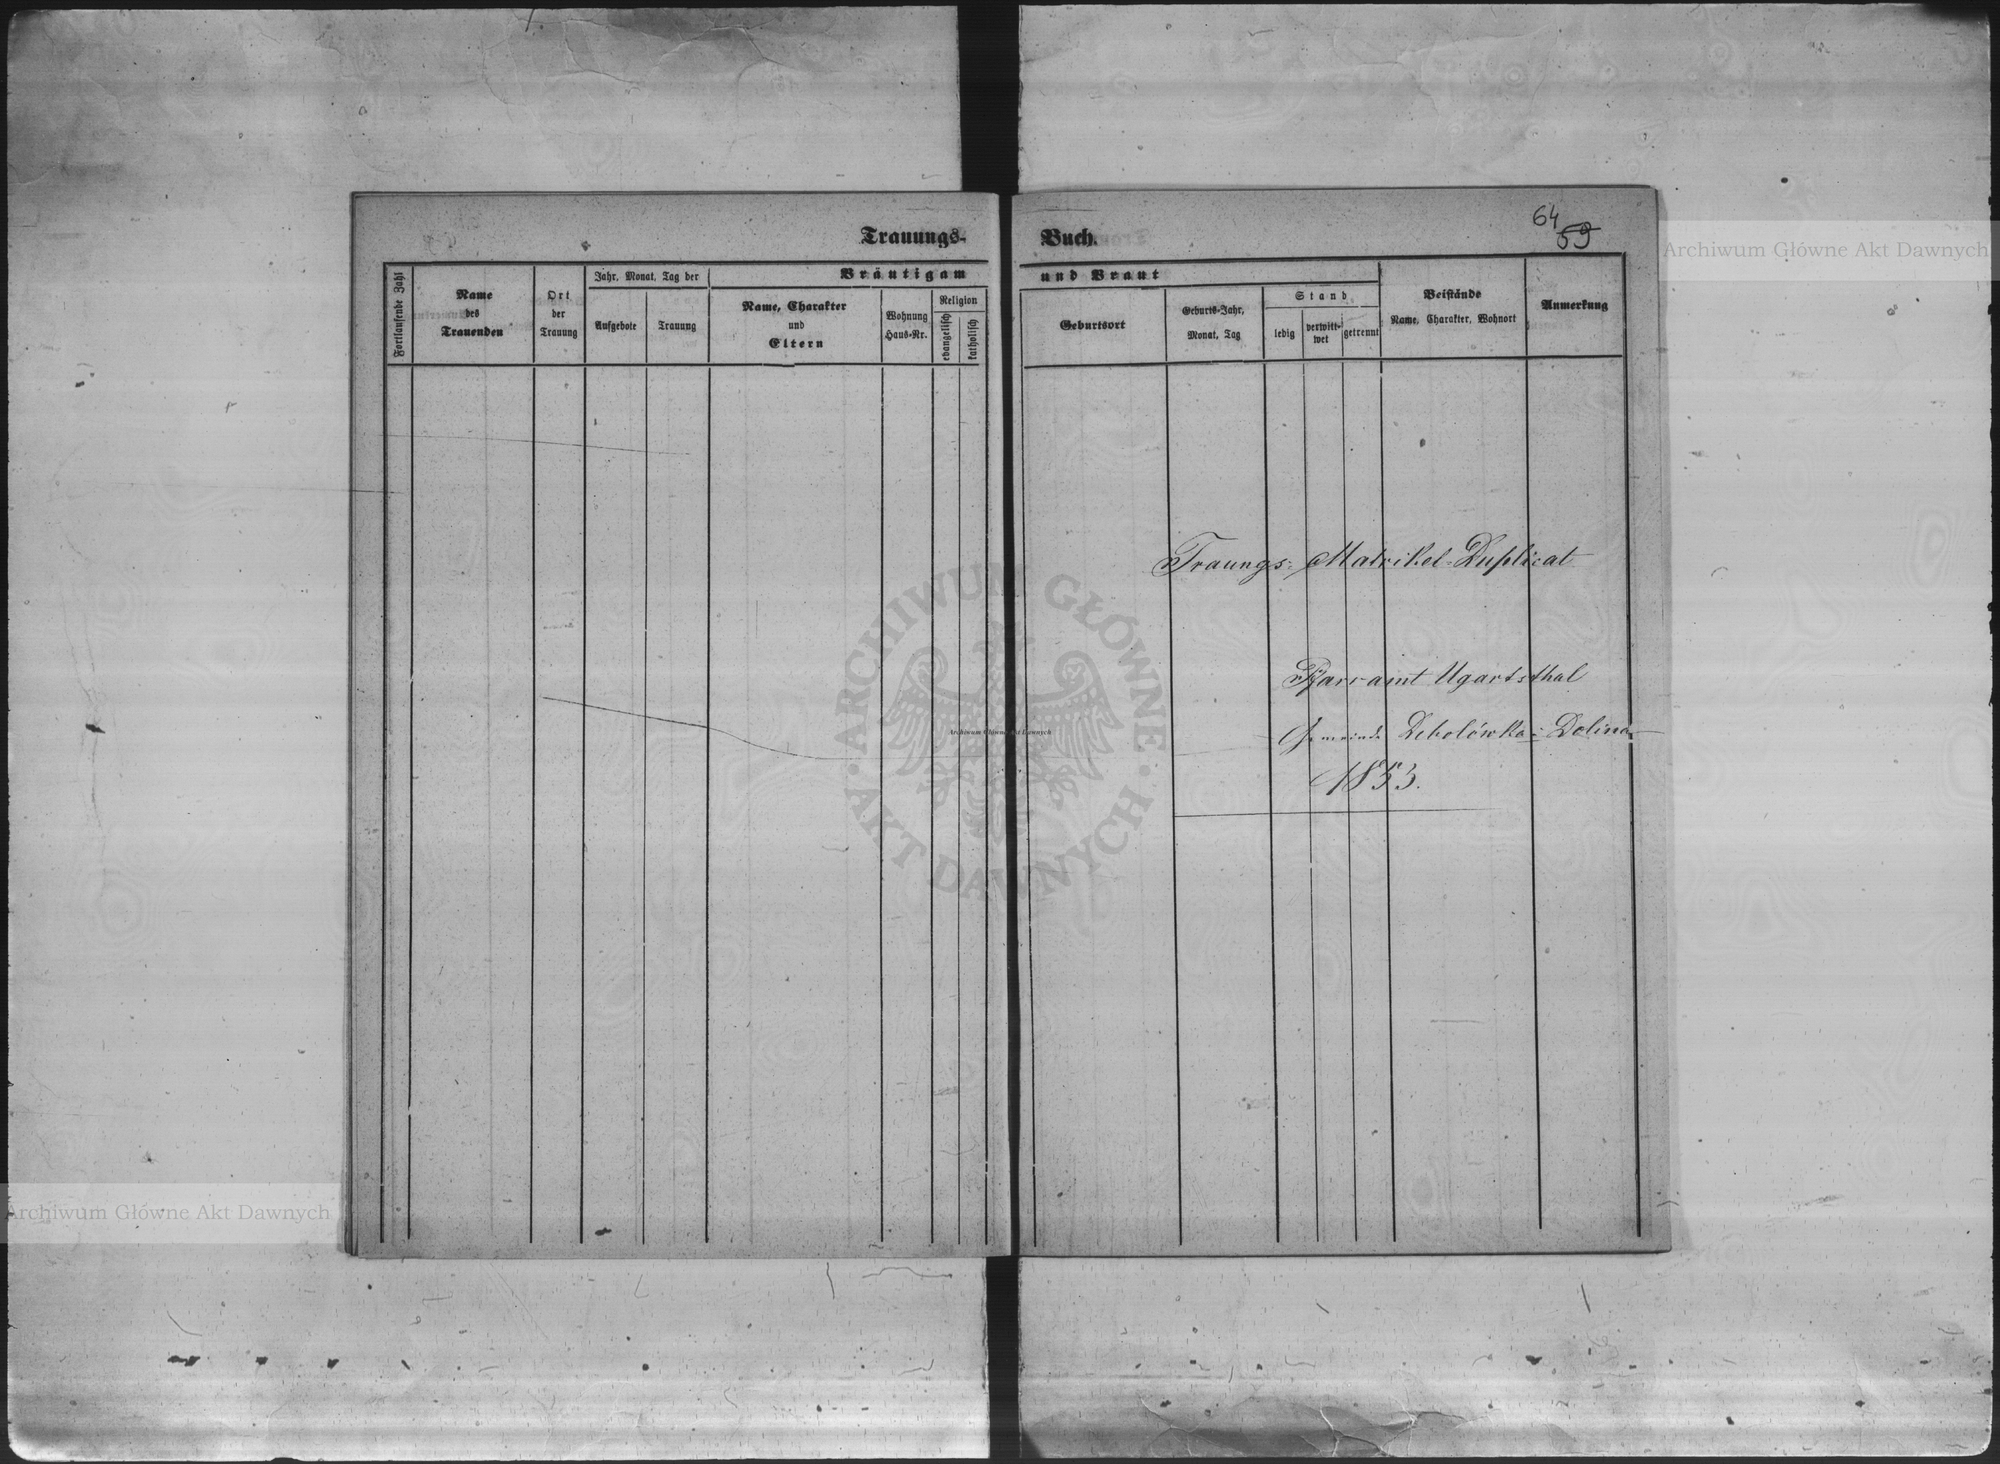 64
59
Trauungs-
Buch.
Fortlaufende Zahl
Name
des
Trauenden
Ort
der
Trauung
Jahr, Monat, Tag der
Aufgebote
Trauung
Bräutigam
Name, Charakter
und
Eltern
Wohnung
Haus-Nr.
Religion
evangelisch
katholisch
und Braut
Geburtsort
Geburts-Jahr,
Monat, Tag
Stand
ledig
verwitt-
wet
getrennt
Beistände
Name, Charakter, Wohnort
Anmerkung
Traungs-Matrikel-Duplicat
Pfarramt Ugartsthal
Gemeinde Debolówka: Dolina
1853.
Archiwum Główne Akt Dawnych
ARCHIWUM GŁÓWNE
AKT DAWNYCH
Archiwum Główne Akt Dawnych
Archiwum Główne Akt Dawnych